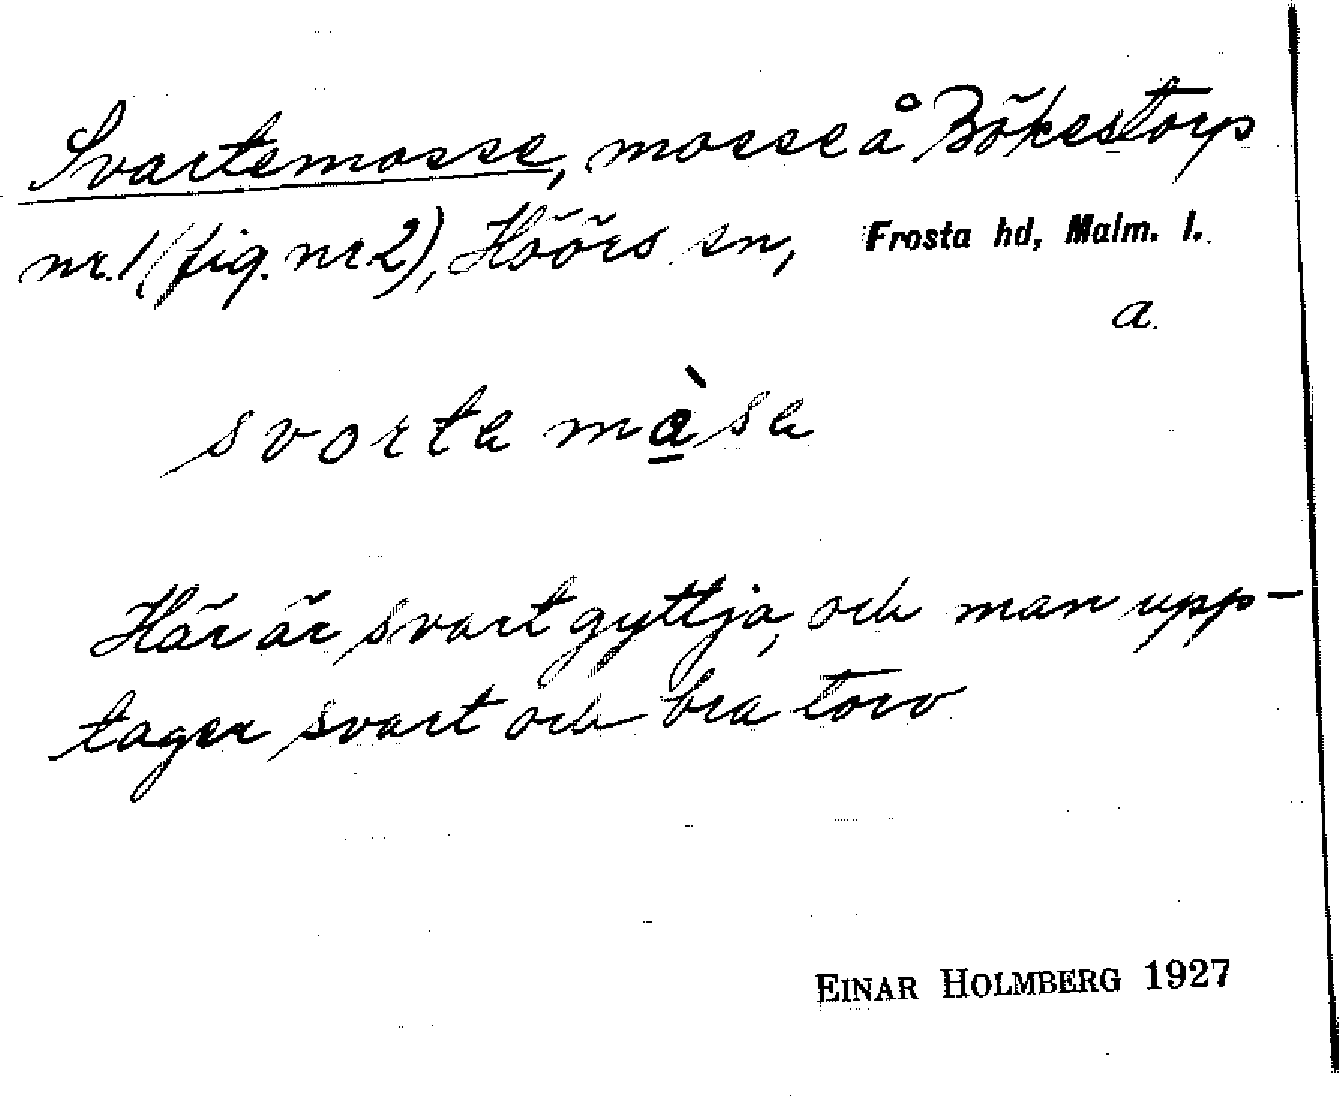 Svartemosse, mosse å Bökestorp
nr. 1 (fig. nr 2), Höörs sn, Frosta hd, Malm. l.
a.
svorta mà̱sa
Här är svart gyttja, och man upp-
tager svart och bra torv
EINAR HOLMBERG 1927